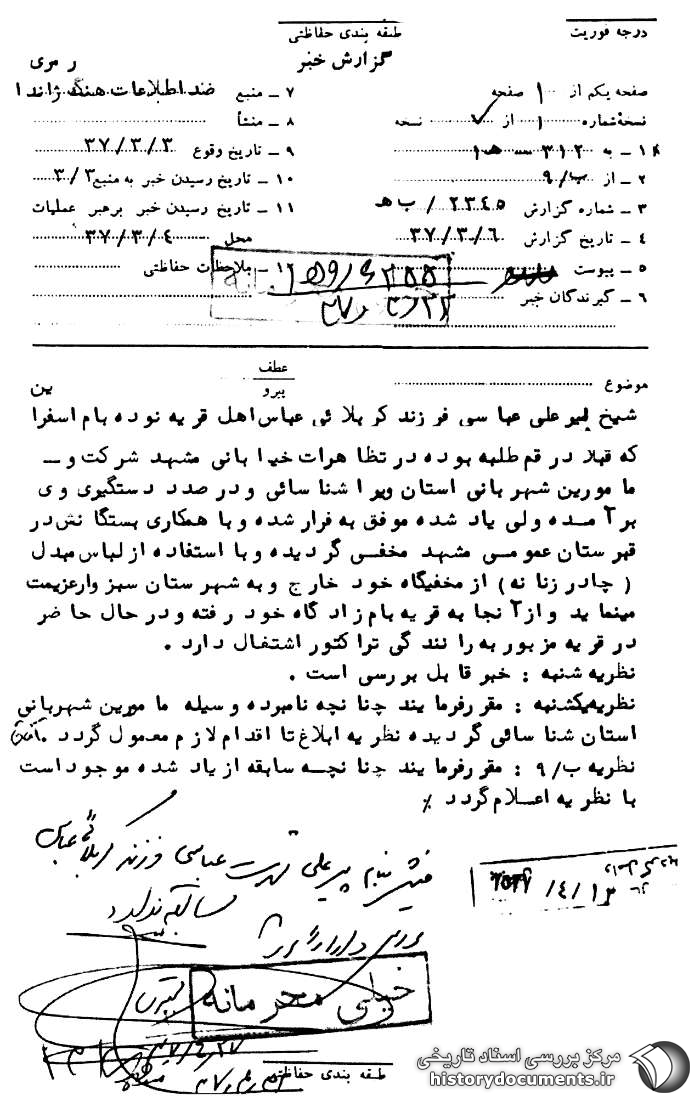 درجه فوریت
طبقه بندی حفاظتی
گزارش خبر
رمزی
صفحه یکم از ۱ صفحه
نسخه شماره ۱ از ۷ نسخه
۱ – به ۳۱۲ – ه‍ ۱
۲ – از ۹/ب
۳ – شماره گزارش ۲۳۴۵ / ب ه‍
۴ – تاریخ گزارش ۳۷/۳/۶
۵ – پیوست
۶ – گیرندگان خبر
۷ – منبع ضد اطلاعات هنگ ژاندا
۸ – منشأ
۹ – تاریخ وقوع ۳۷/۳/۳
۱۰ – تاریخ رسیدن خبر به منبع ۳/۳
۱۱ – تاریخ رسیدن خبر برهبر عملیات
محل ۳۷/۳/۴
۱۲ – ملاحظات حفاظتی
موضوع
عطف
پیرو
شیخ پیرعلی عباسی فرزند کربلائی عباس اهل قریه نوده بام اسفرا
ین
که قبلا در قم طلبه بوده در تظاهرات خیابانی مشهد شرکت و –
مامورین شهربانی استان ویرا شناسائی و در صدد دستگیری وی
برآمده ولی یاد شده موفق به فرار شده و با همکاری بستگانش در
قبرستان عمومی مشهد مخفی گردیده و با استفاده از لباس مبدل
(چادر زنانه) از مخفیگاه خود خارج و به شهرستان سبزوار عزیمت
مینماید و از آنجا به قریه بام زادگاه خود رفته و در حال حاضر
در قریه مزبور به رانندگی تراکتور اشتغال دارد .
نظریه شنبه : خبر قابل بررسی است .
نظریه یکشنبه : مقرر فرمایند چنانچه نامبرده وسیله مامورین شهربانی
استان شناسائی گردیده نظریه ابلاغ تا اقدام لازم معمول گردد .
نظریه ۹/ب : مقرر فرمایند چنانچه سابقه از یاد شده موجود است
با نظریه اعلام گردد ٪
پیرعلی شهرت عباسی فرزند کربلائی عباس
سابقه ندارد
خیلی محرمانه
طبقه بندی حفاظتی
مرکز بررسی اسناد تاریخی
historydocuments.ir